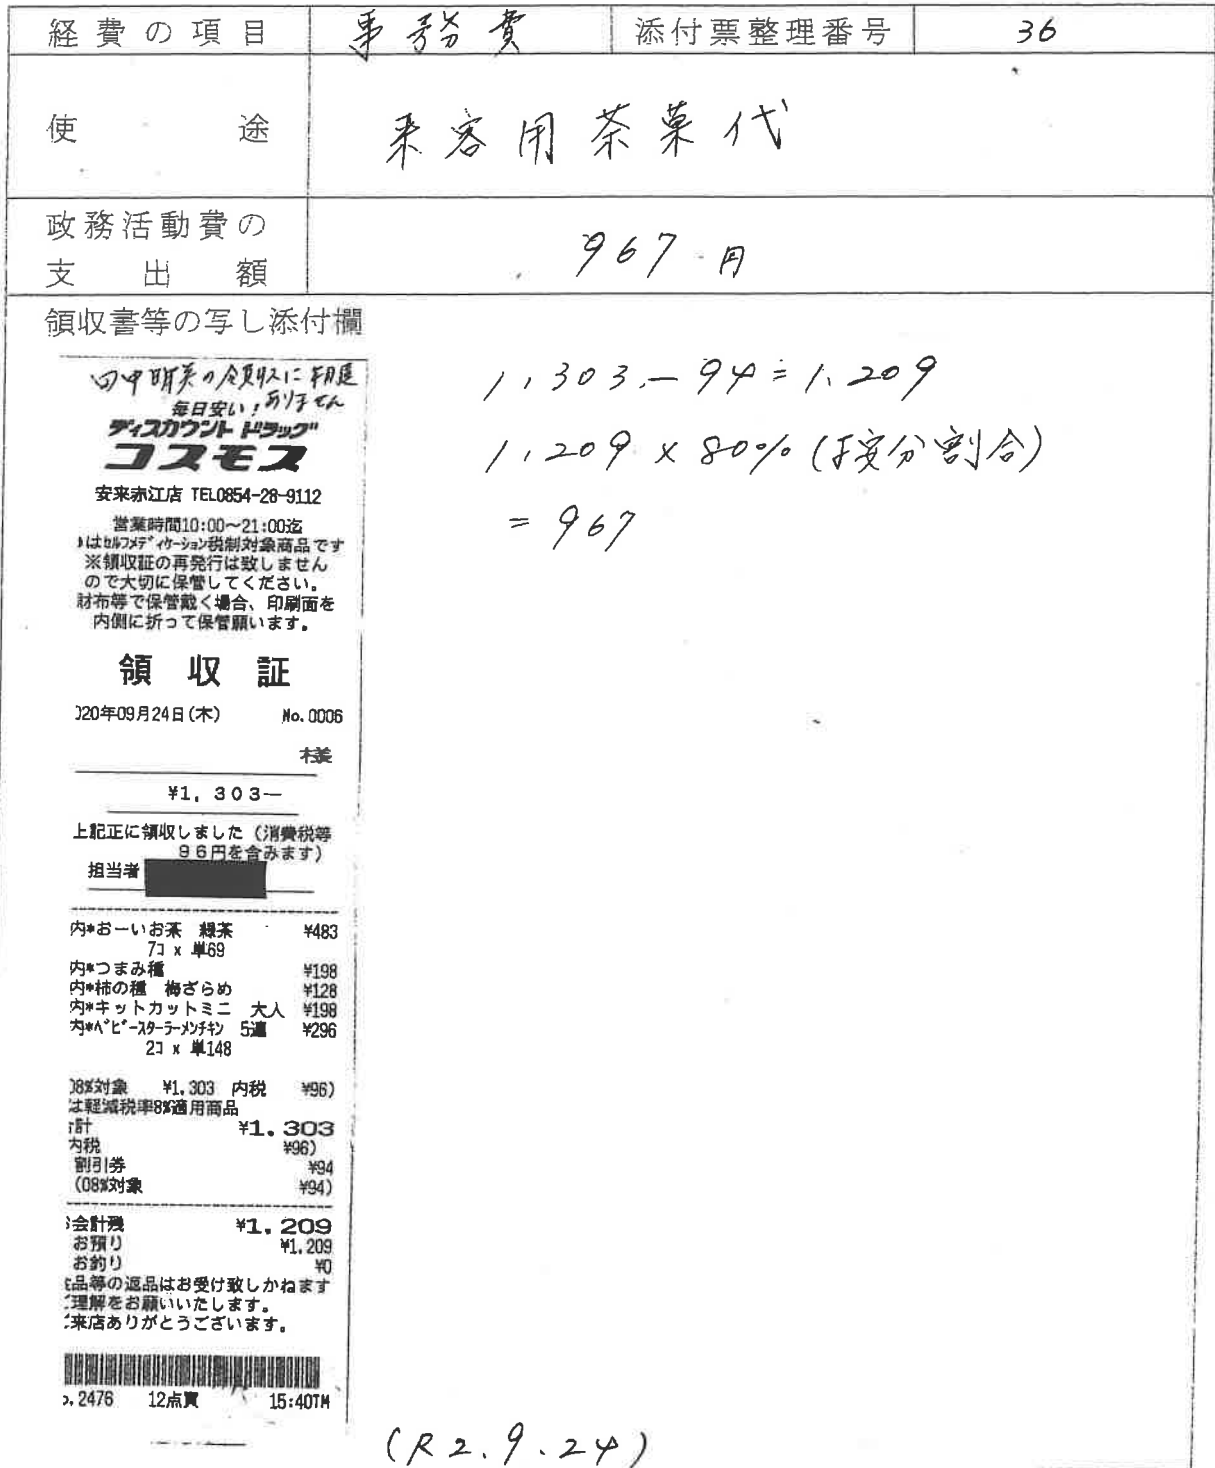 経費の項目 事務費 添付票整理番号 36
使途 来客用茶菓代
政務活動費の
支出額 967円
領収書等の写し添付欄
田中明美の領収に相違
ありません
毎日安い!
ディスカウント ドラッグ
コスモス
安来赤江店 TEL0854-28-9112
営業時間10:00〜21:00迄
はセルフメディケーション税制対象商品です
※領収証の再発行は致しません
ので大切に保管してください。
財布等で保管戴く場合、印刷面を
内側に折って保管願います。
領収証
020年09月24日(木) No.0006
様
¥1,303―
上記正に領収しました(消費税等
96円を含みます)
担当者
内*おーいお茶 緑茶 ¥483
7コ x 単69
内*つまみ種 ¥198
内*柿の種 梅ざらめ ¥128
内*キットカットミニ 大人 ¥198
内*ベビースターラーメンチキン 5連 ¥296
2コ x 単148
08%対象 ¥1,303 内税 ¥96)
は軽減税率8%適用商品
計 ¥1,303
内税 ¥96)
割引券 ¥94
(08%対象 ¥94)
会計残 ¥1,209
お預り ¥1,209
お釣り ¥0
品等の返品はお受け致しかねます
ご理解をお願いいたします。
ご来店ありがとうございます。
o.2476 12点買 15:40TM
1,303-94=1,209
1,209×80%(按分割合)
=967
(R2.9.24)